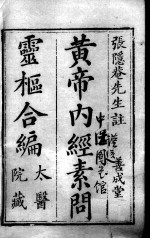 張隱菴先生註
善成堂
黃帝內經素問
靈樞合編
太醫
院藏